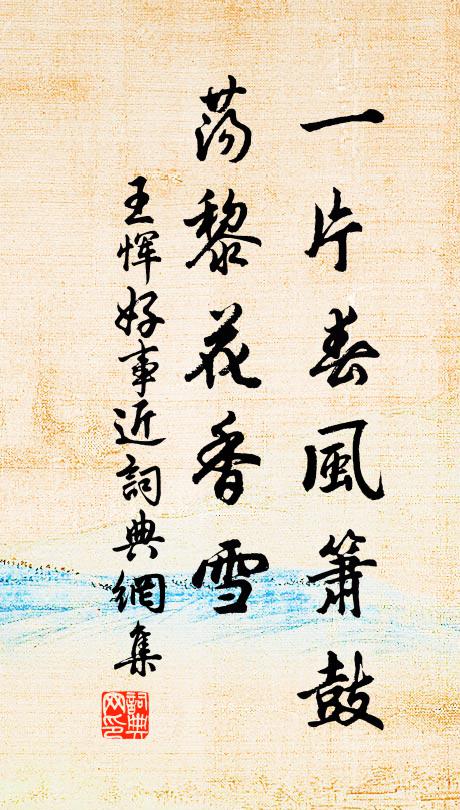 一片春風簫鼓
蕩黎花香雪
王恽好事近詞典網集
詞典網印